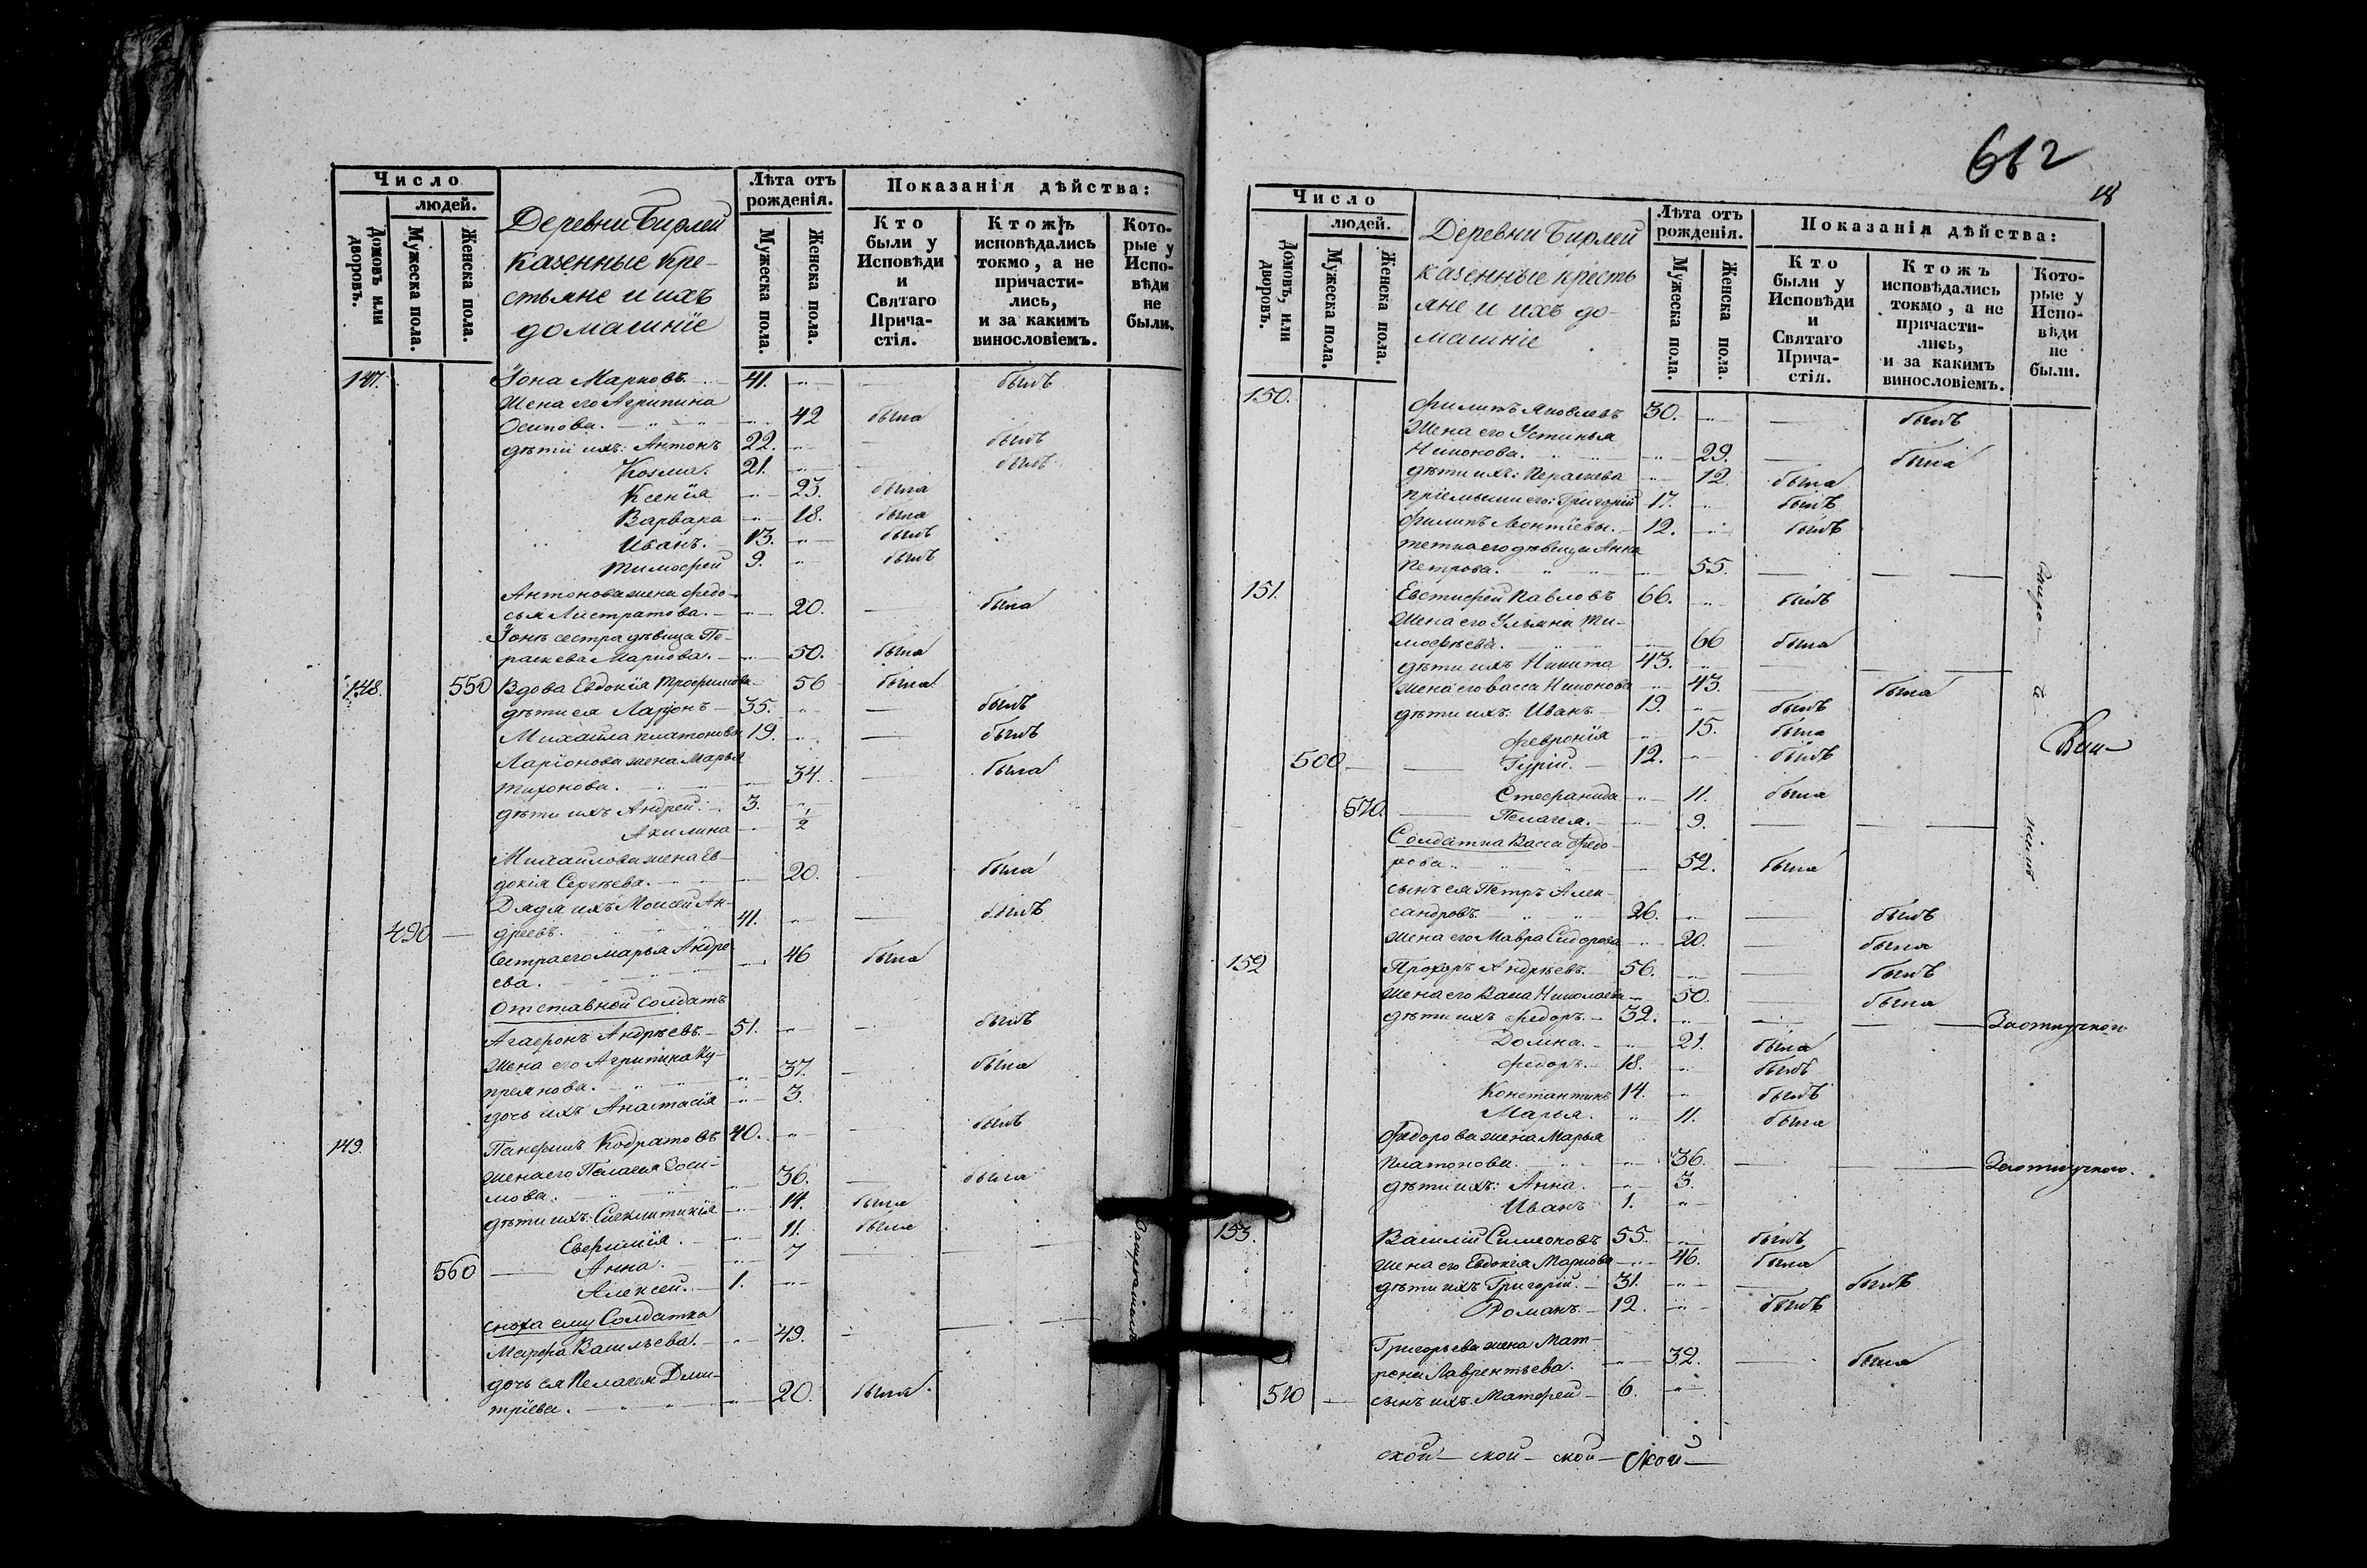 Число
людей.
Домовъ или дворовъ.
Мужеска пола.
Женска пола.
Деревни Бирлей
казенные кре-
стьяне и ихъ
домашніе
Лѣта отъ
рожденія.
Мужеска пола.
Женска пола.
Показанія дѣйства:
Кто
были у
Исповѣди
и
Святаго
Прича-
стія.
Ктожъ
исповѣдались
токмо, а не
причасти-
лись,
и за какимъ
винословіемъ.
Кото-
рые у
Испо-
вѣди
не
были.
147. Іона Марковъ. 41. былъ
Жена его Агрипина
Осипова. 42 была
дѣти ихъ: Антонъ 22. былъ
Козма. 21. былъ
Ксенія 23. была
Варвара 18. была
Иванъ. 13. былъ
Тимофей 9. былъ
Антонова жена Федо-
сья Листратова. 20. была
Іонъ сестра дѣвица Пе-
раскева Маркова. 50. была
148. 550 Вдова Евдокія Трофимова 56 была
дѣти ея Ларіонъ 35. былъ
Михайла Платоновы 19. былъ
Ларіонова жена Марья
Тихонова. 34. была
дѣти ихъ Андрей. 3.
Акилина 1/2
Михайлова жена Ев-
докія Сергѣева. 20. была
Дядя ихъ Моисей Ан-
490 дреевъ. 41. былъ
Сестра его Марья Андре
ева. 46 была
Отставной солдатъ
Агафонъ Андрѣевъ. 51. былъ
Жена его Агрипина Ку-
преянова. 37. была
дочь ихъ Анастасія 3.
149. Панфилъ Кодратовъ 40. былъ
Жена его Пелагея Зоси-
мова. 36. была
дѣти ихъ: Сигклитикія 14. была
Евфимія. 11. была
560 Анна. 7
Алексей. 1.
сноха ему Солдатка
Марфа Васильева. 49.
дочь ея Пелагея Дми-
тріева. 20. была
612
Число
людей.
Домовъ, или дворовъ.
Мужеска пола.
Женска пола.
Деревни Бирлей
казенные кресть
яне и ихъ до-
машніе
Лѣта отъ
рожденія.
Мужеска пола.
Женска пола.
Показанія дѣйства:
Кто
были у
Исповѣди
и
Святаго
Прича-
стія.
Ктожъ
исповѣдались
токмо, а не
причасти-
лись,
и за какимъ
винословіемъ.
Кото-
рые у
Испо-
вѣди
не
были.
150. Филипъ Яковлевъ 30. былъ
Жена его Устинья
Никонова. 29. была
дѣти ихъ: Пераскева 12. была
пріемыши его: Григорій 17. былъ
Филипъ Леонтіевы. 12. былъ
тетка его дѣвица Анна
Петрова. 55.
151. Евстифей Павловъ 66. былъ
Жена его Ульяна Ти-
мофѣева. 66 была
дѣти ихъ Никита 43.
Жена его Васса Никонова 43. была
дѣти ихъ: Иванъ. 19. былъ
Февронія 15. была
500 Гурій. 12. былъ
Стефанида 11. была
570. Пелагея. 9.
Солдатка Васса Федо-
рова. 52. была
сынъ ея Петръ Алек-
сандровъ. 26. былъ
Жена его Мавра Сидорова 20. была
152 Прохоръ Андрѣевъ. 56. былъ
Жена его Васса Николаева 50. была
дѣти ихъ Федоръ. 32. За отлучкою
Домна. 21. была
Федоръ. 18. былъ
Константинъ 14. былъ
Марья. 11. была
Федорова жена Марья
Платонова. 36. За отлучкою.
дѣти ихъ: Анна. 3.
Иванъ 1.
153. Василій Симеоновъ 55. былъ
Жена его Евдокія Маркова 46. была
дѣти ихъ Григорій. 31. былъ
Романъ. 12. былъ
Григорьева жена Мат-
рена Лаврентьева. 32. была
510 сынъ ихъ Матфей 6.
ской ской ской ской